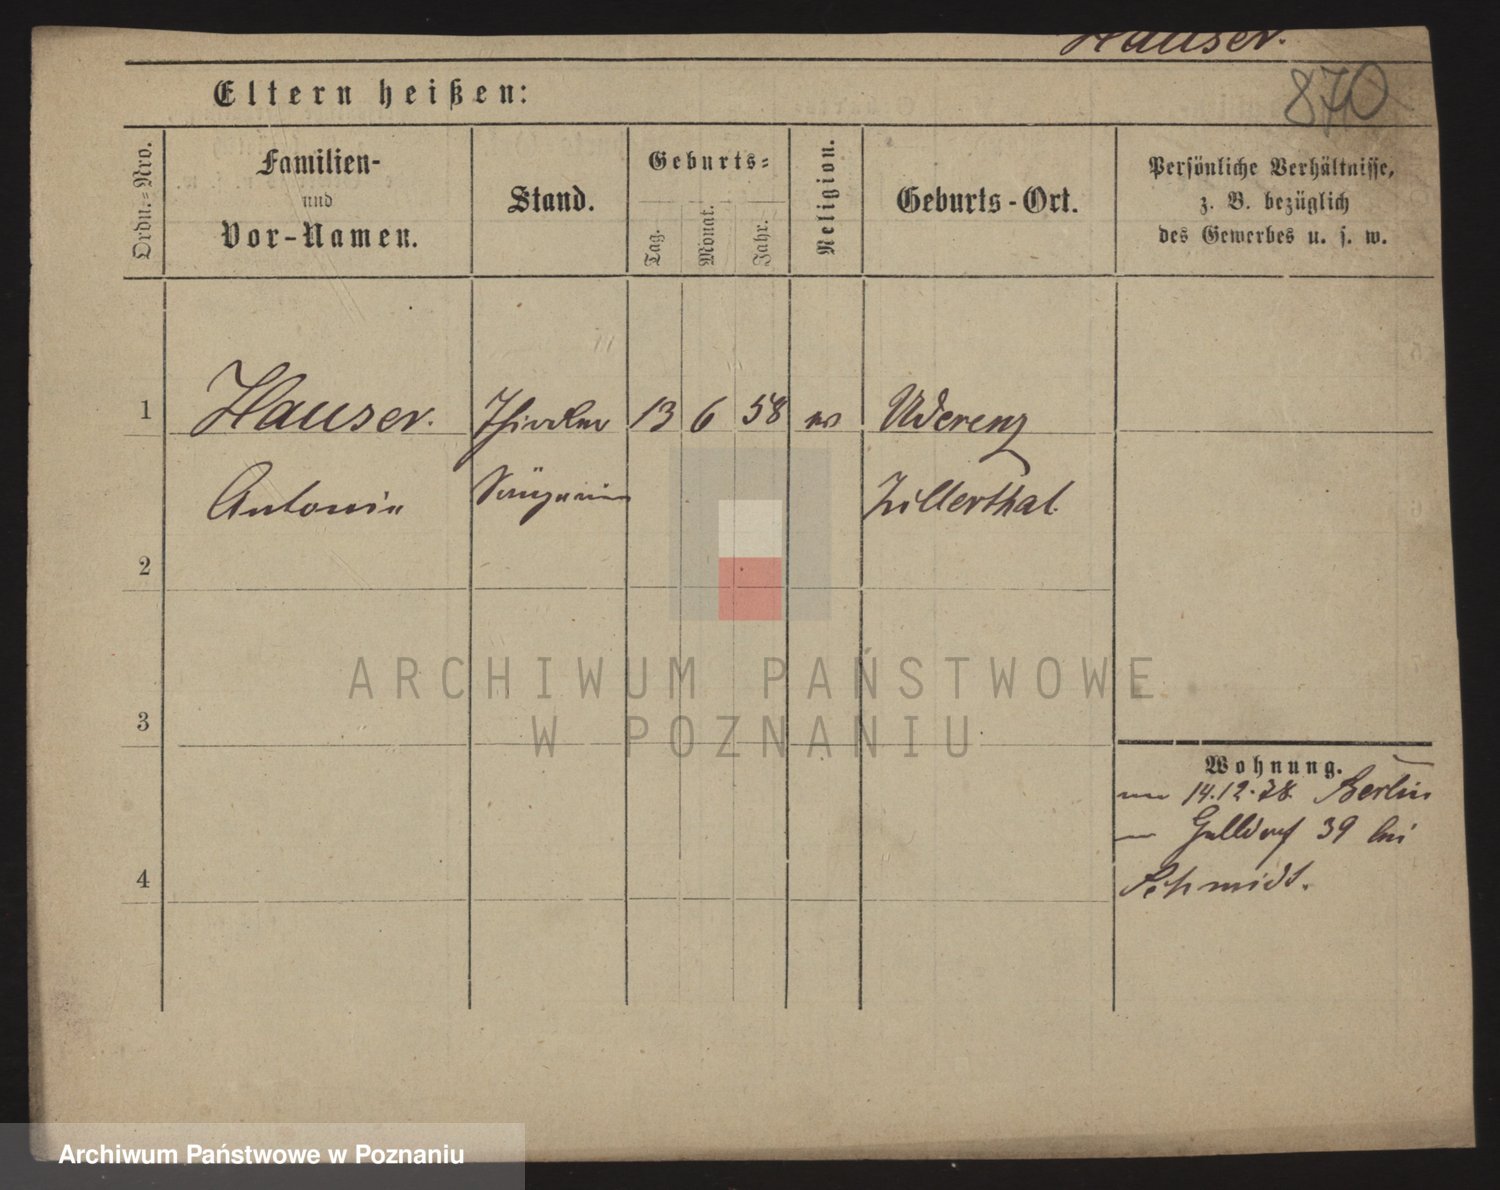 Hauser.
870
Eltern heißen:
Ordn.-Nro.
Familien-
und
Vor-Namen.
Stand.
Geburts-
Tag.
Monat.
Jahr.
Religion.
Geburts-Ort.
Persönliche Verhältnisse,
z. B. bezüglich
des Gewerbes u. s. w.
1 Hauser. 13 6 58 Uderenz
Antonie Zillerthal.
2
3
4
Wohnung.
14.12.78. Berlin
39 bei
Schmidt.
ARCHIWUM PAŃSTWOWE
W POZNANIU
Archiwum Państwowe w Poznaniu